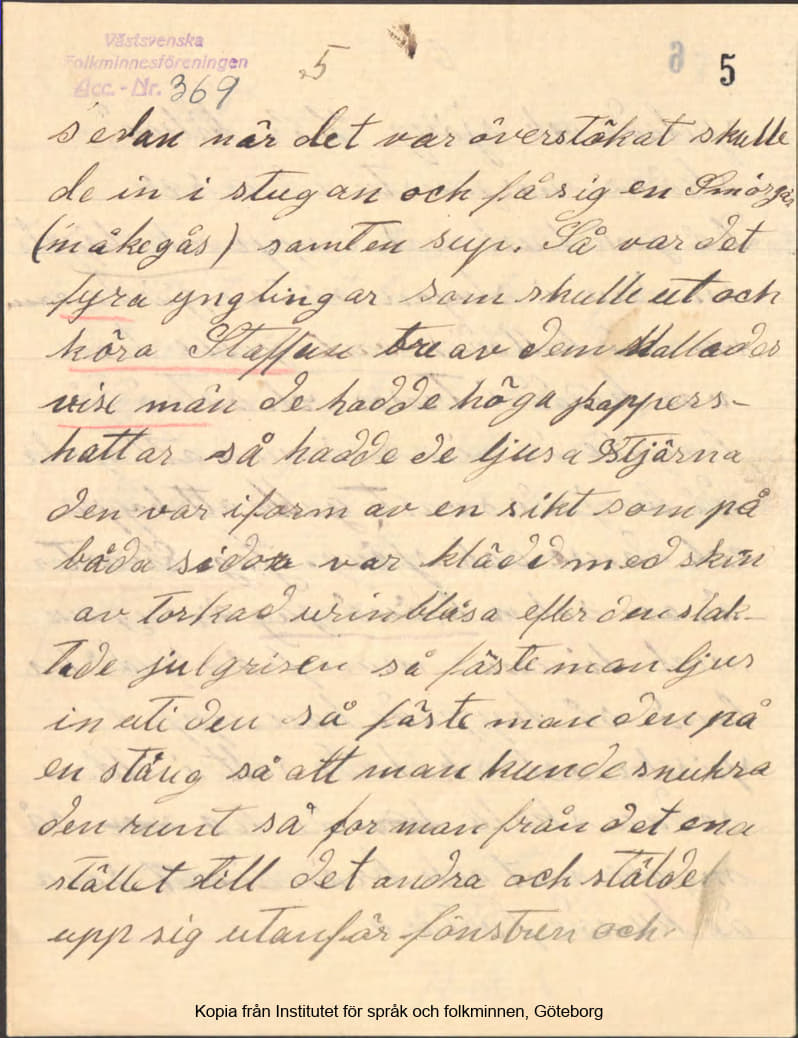 Västsvenska
Folkminnesföreningen
Acc. - Nr. 369
5
6
5
sedan når det var överstökat skulle
de in i stugan och få sig en Smörgås
(måkegås) samt en sup. Så var det
fyra ynglingar som skulle ut och
köra Staffan tre av dem kallades
vise män de hadde höga pappers-
hattar så hadde de ljusa Stjärna
den var i form av en sikt som på
båda sidor var klädd med skin
av torkad urinblåsa efter den slak-
tade julgrisen så fäste man ljus
in uti den så fäste man den på
en stång så att man kunde snukra
den runt så for man från det ena
stället till det andra och stälde
upp sig utanför fönstren och
Kopia från Institutet för språk och folkminnen, Göteborg